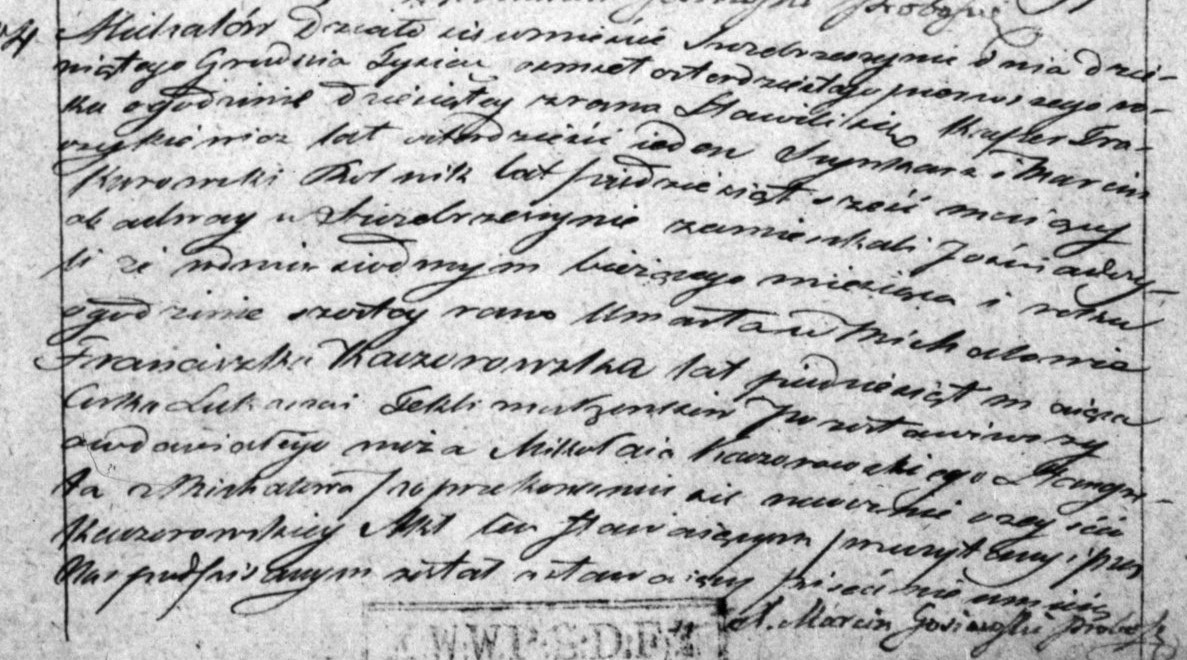 Michałów Działo się w mieście Szczebrzeszynie dnia dzie-
wiątego Grudnia Tysiąc osmset czterdziestego pierwszego ro-
ku o godzinie dziesiątey z rana Stawili się Kasper Fra-
czykiewicz lat czterdzieści ieden Szynkarz i Marcin
Kurowski Rolnik lat piędziesiąt sześć maiący
obadway w Szczebrzeszynie zamieszkali Joświadczy-
li że w dniu siodmym bieżącego miesiąca i roku
o godzinie szóstey rano Umarła w Michałowie
Franciszka Kaczorowska lat piędziesiąt maiąca
Corka Łukasza i Tekli małżonków Pozostawiwszy
owdowiałego męża Mikołaia Kaczorowskiego
ta z Michałowa Po przekonaniu się naocznie o zeyściu
Kaczorowskiey Akt ten Stawaiącym przeczytany i przez
Nas podpisanym został stawaiący pisać nie umieią
X. Marcin Proboszcz
W.W.P.S.D.F.